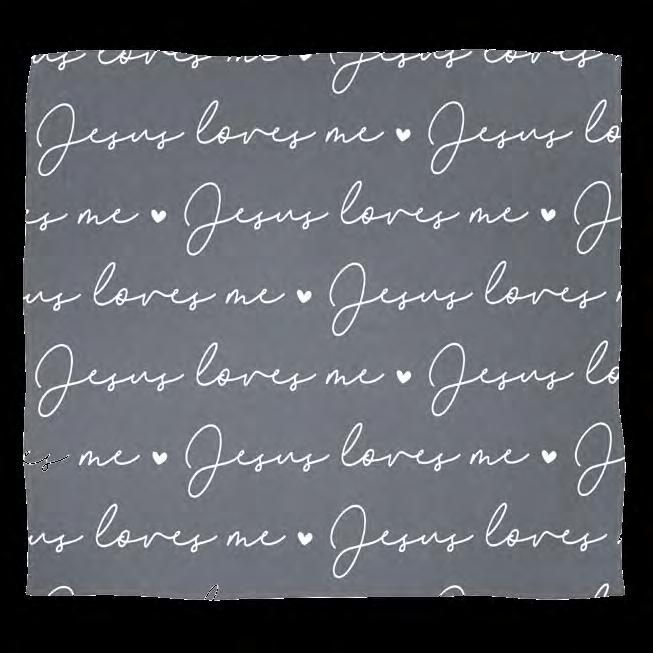 us loves me ♥ Jesus loves
Jesus loves me ♥ Jesus lo
es me ♥ Jesus loves me ♥ J
us loves me ♥ Jesus loves
Jesus loves me ♥ Jesus lo
es me ♥ Jesus loves me ♥ J
us loves me ♥ Jesus loves